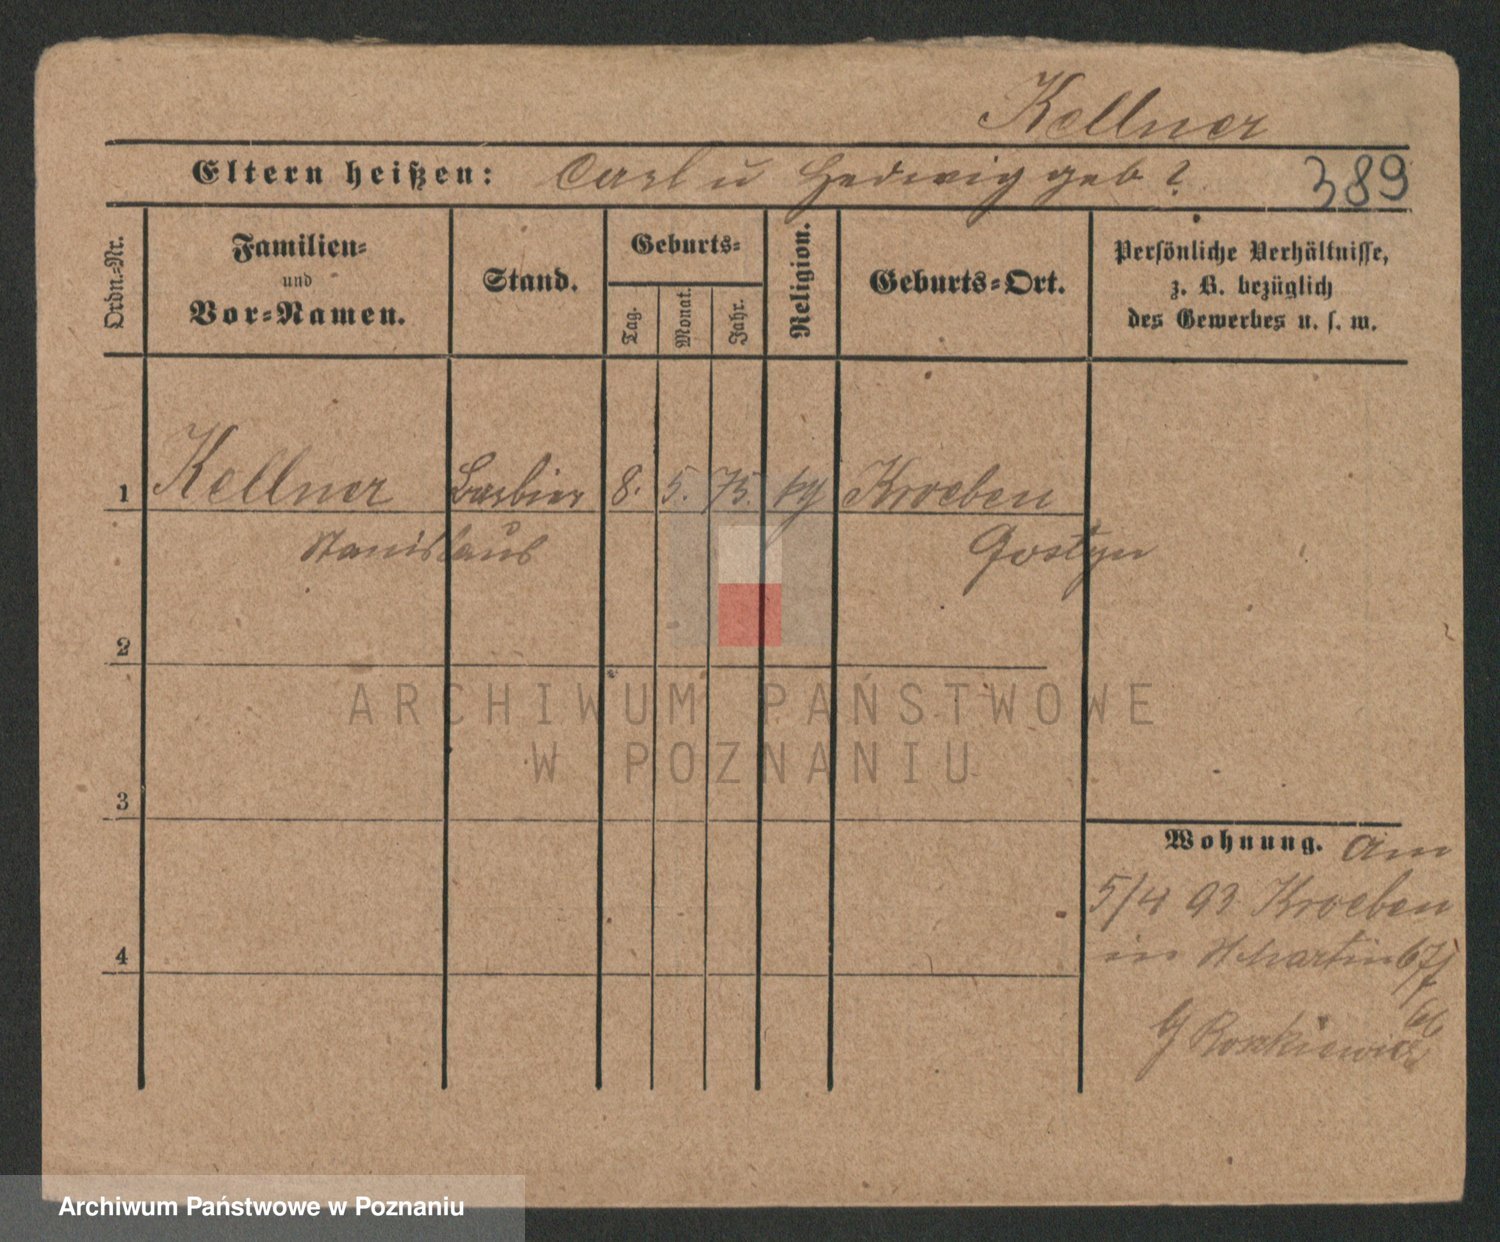 Kellner
Eltern heißen: Carl u Hedwig geb ?
389
Ordn.-Nr.
Familien-
und
Vor-Namen.
Stand.
Geburts-
Tag.
Monat.
Jahr.
Religion.
Geburts-Ort.
Persönliche Verhältnisse,
z. B. bezüglich
des Gewerbes u. s. w.
1 Kellner Barbier 8. 5. 75. kg Kroeben
Stanislaus Gostyn
2
3
4
Wohnung. am
5/4 92 Kroeben
in St Martin 67/
66
Roszkiewicz
ARCHIWUM PAŃSTWOWE
W POZNANIU
Archiwum Państwowe w Poznaniu